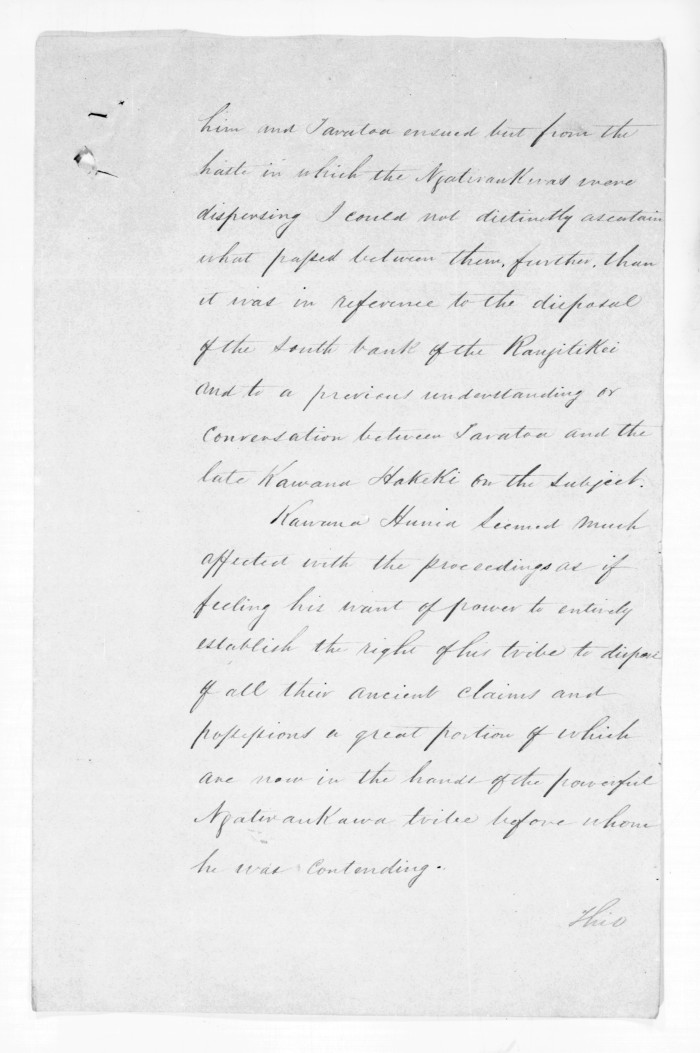 him and Taratoa ensued but from the
haste in which the Ngatiraukwas were
dispersing I could not distinctly ascertain
what passed between them, further, than
it was in reference to the disposal
of the South bank of the Rangitikei
and to a previous understanding or
conversation between Taratoa and the
late Kawana Hakeki on the subject.
Kawana Hunia seemed much
affected with the proceedings as if
feeling his want of power to entirely
establish the right of his tribe to dispose
of all their ancient claims and
possessions a great portion of which
are now in the hands of the powerful
Ngatiraukawa tribe before whom
he was contending.
This